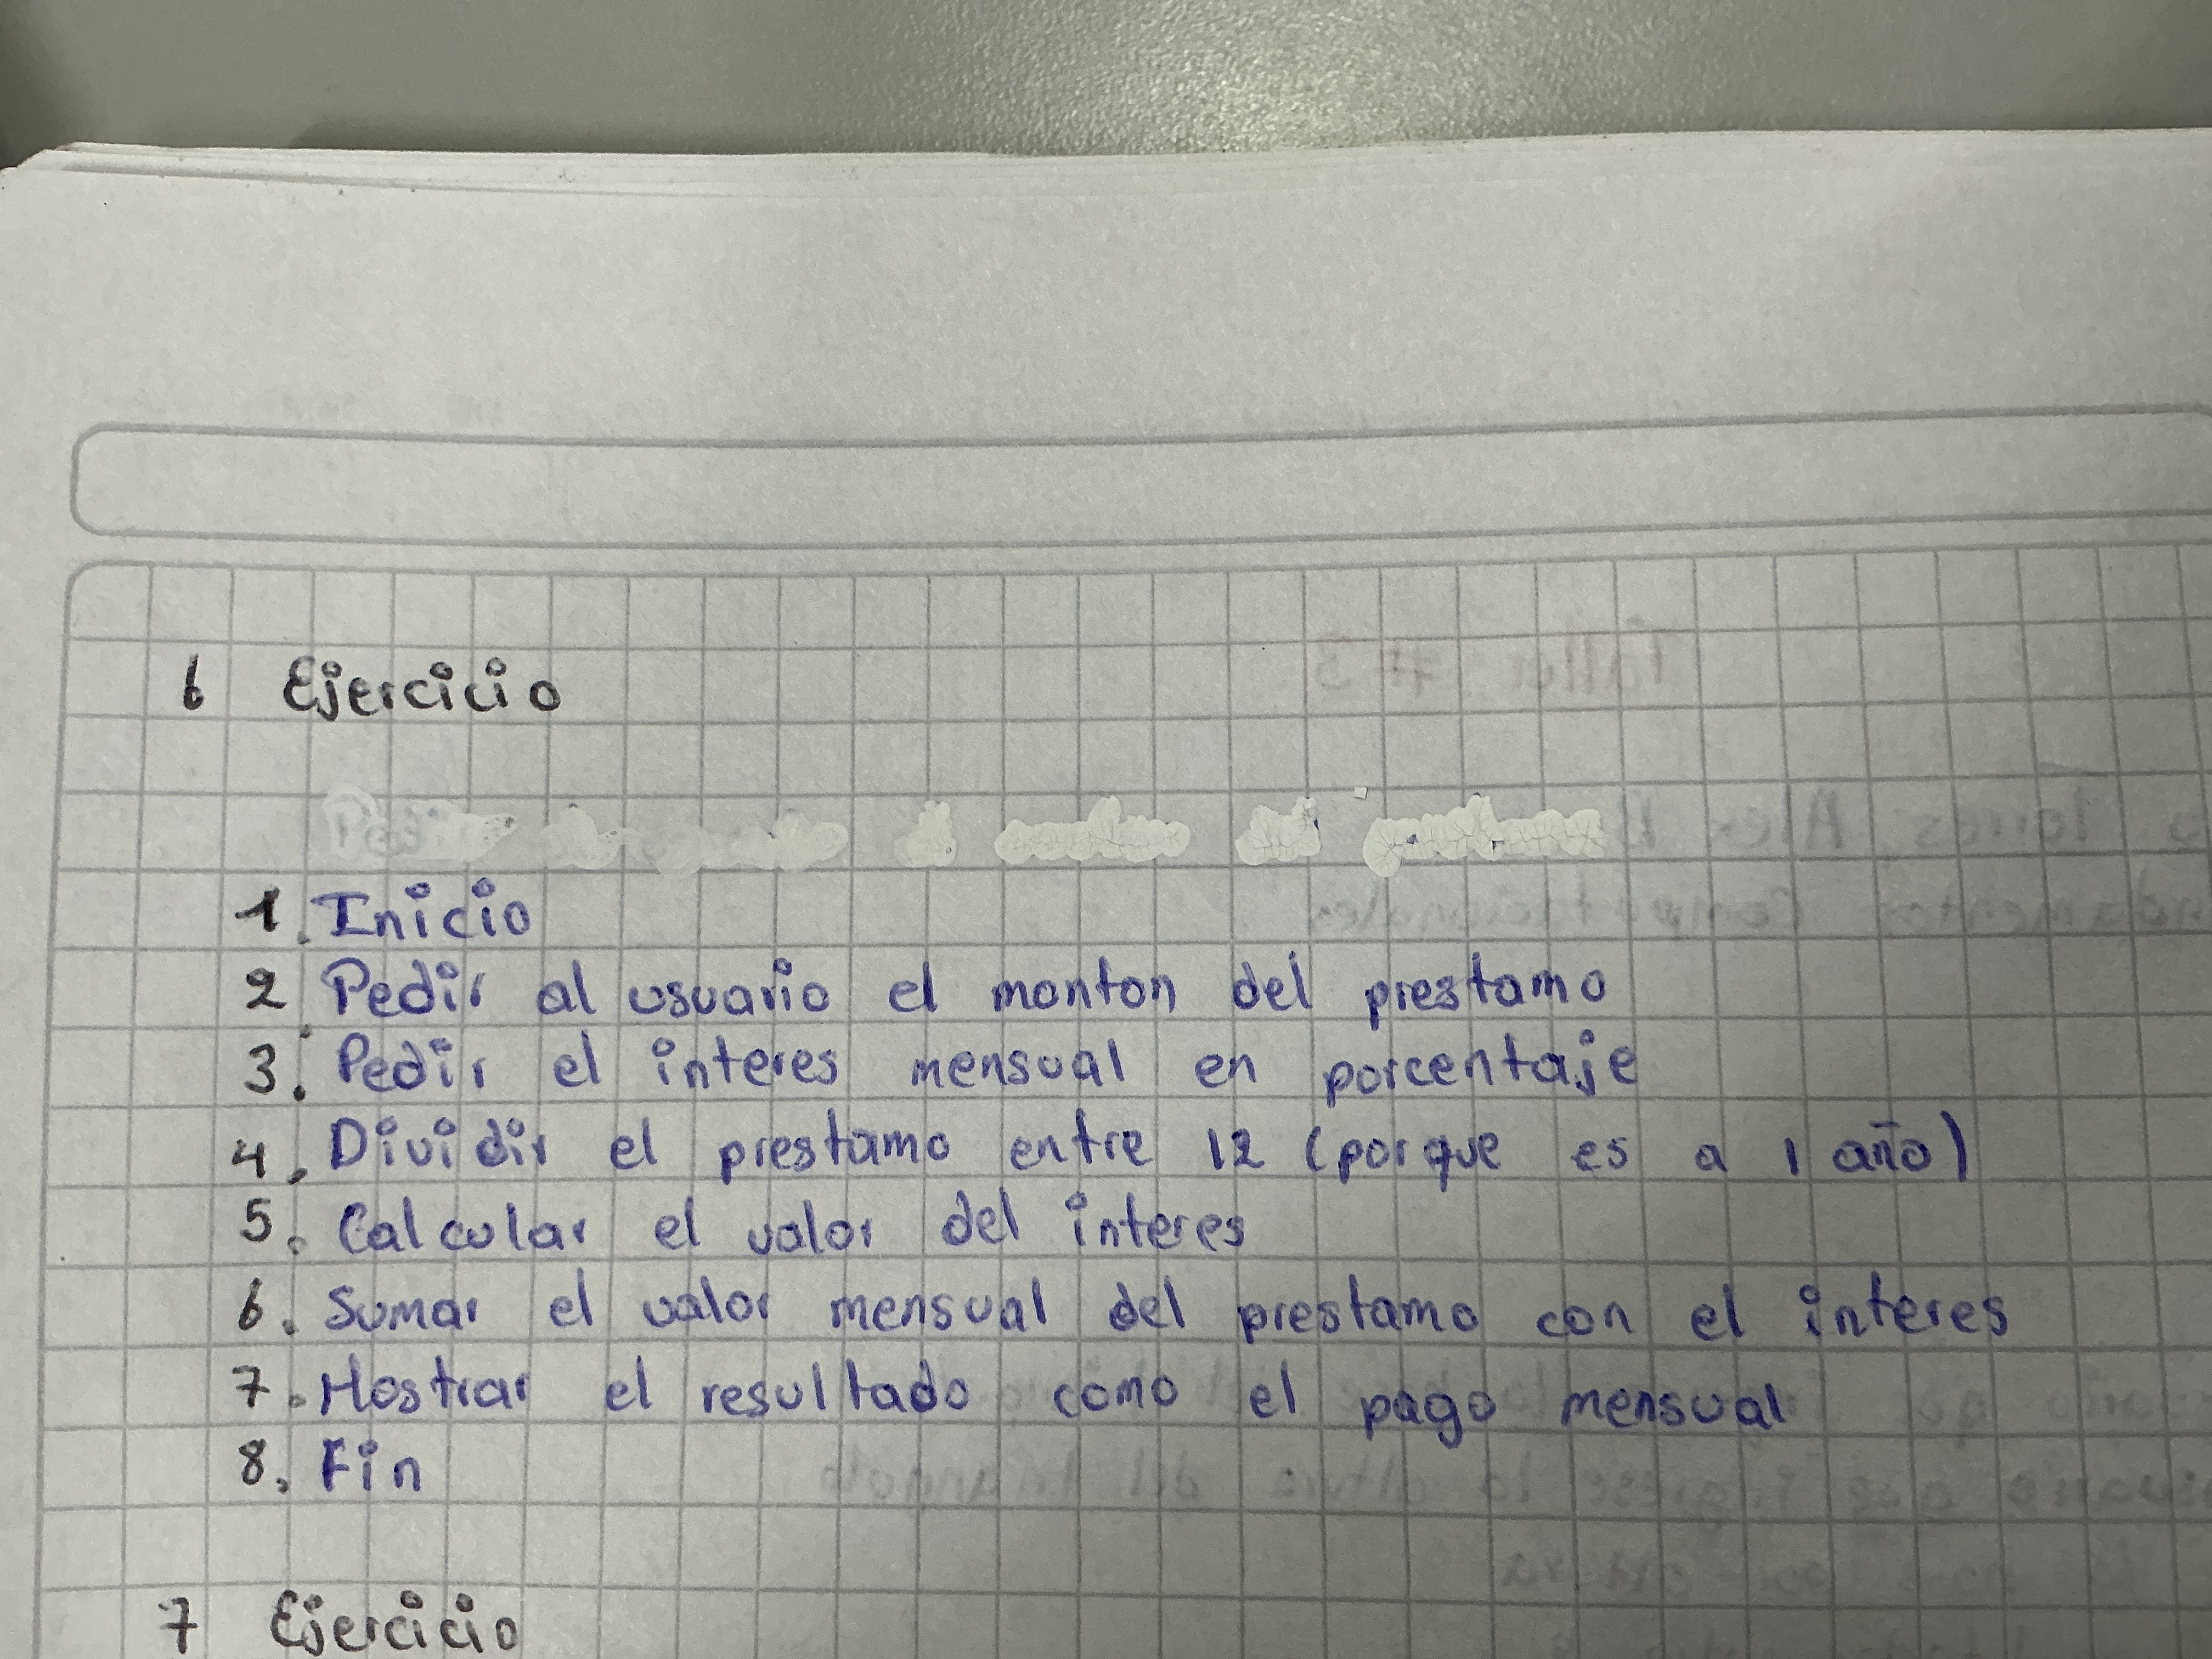 6 Ejercicio
1. Inicio
2. Pedir al usuario el monton del prestamo
3. Pedir el interes mensual en porcentaje
4. Dividir el prestamo entre 12 (porque es a 1 año)
5. Calcular el valor del interes
6. Sumar el valor mensual del prestamo con el interes
7. Mostrar el resultado como el pago mensual
8. Fin
7 Ejercicio